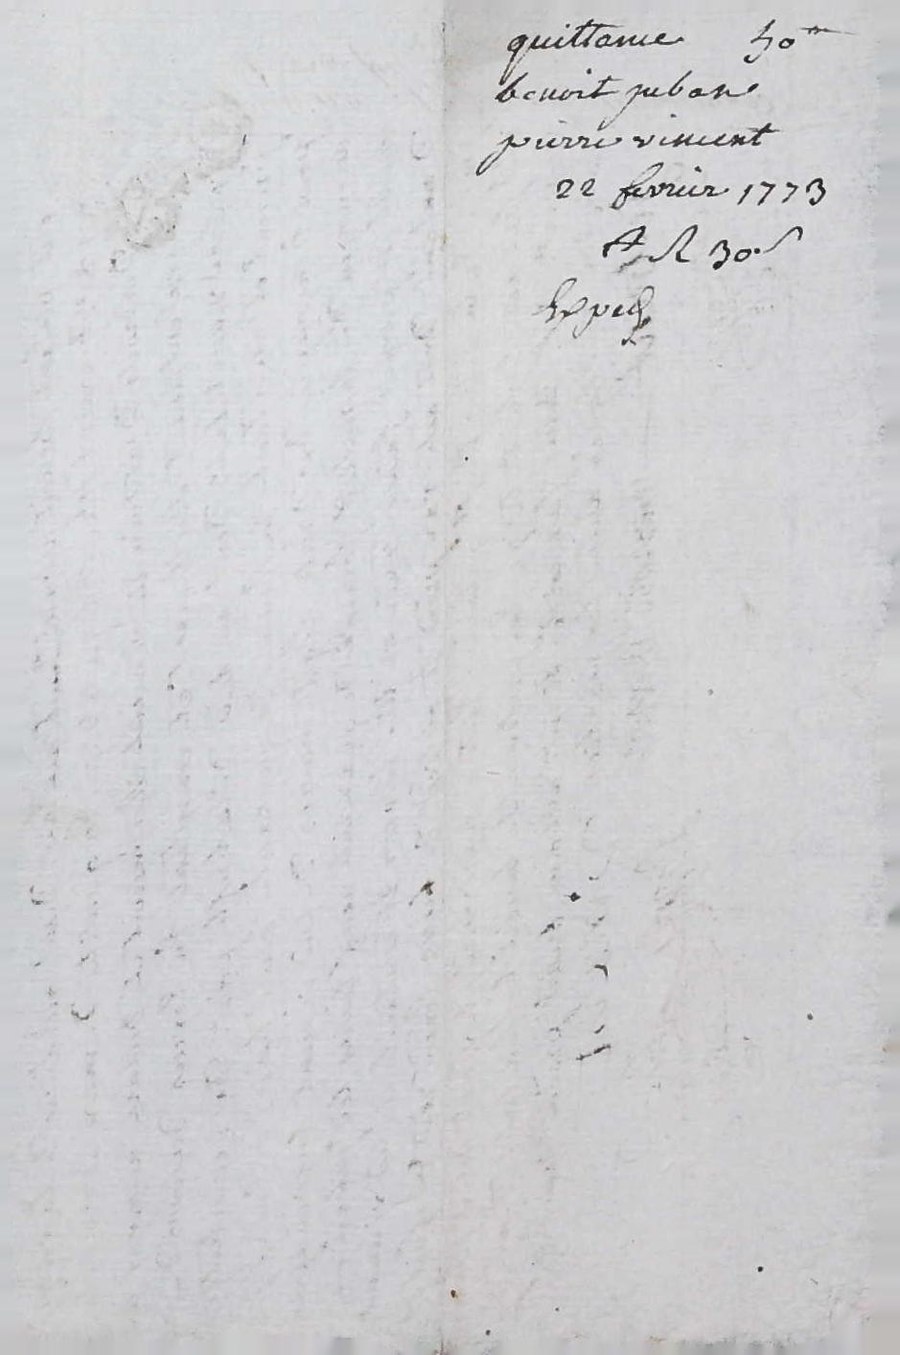 quittance 50tt
benoit juban
pierre vincent
22 fevrier 1773
A R 30 s
Exped